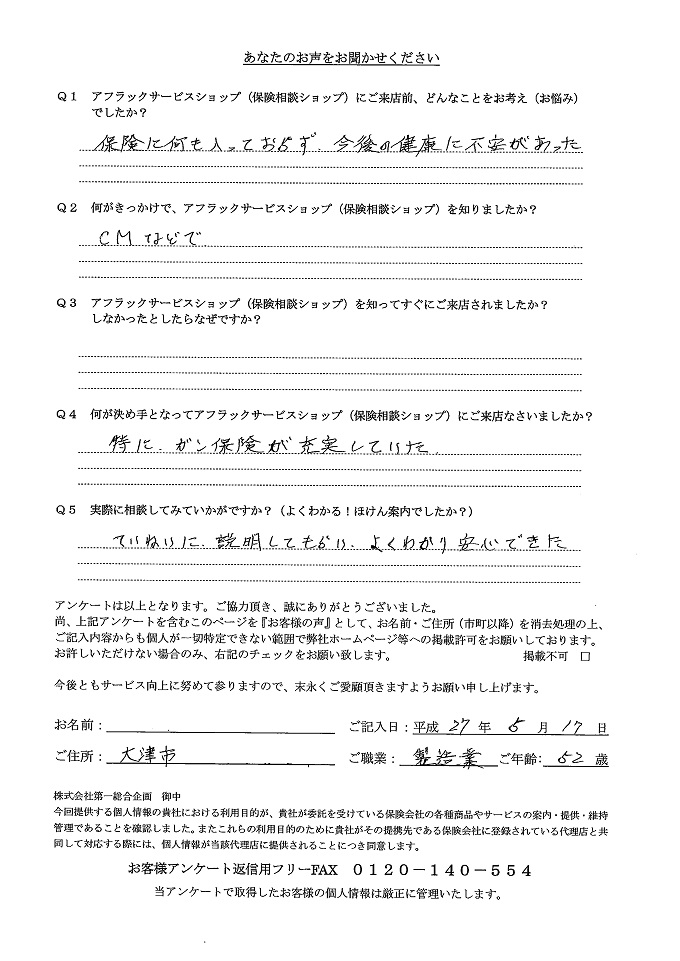 あなたのお声をお聞かせください
Q1 アフラックサービスショップ（保険相談ショップ）にご来店前、どんなことをお考え（お悩み）
でしたか？
保険に何も入っておらず、今後の健康に不安があった
Q2 何がきっかけで、アフラックサービスショップ（保険相談ショップ）を知りましたか？
CMなどで
Q3 アフラックサービスショップ（保険相談ショップ）を知ってすぐにご来店されましたか？
しなかったとしたらなぜですか？
Q4 何が決め手となってアフラックサービスショップ（保険相談ショップ）にご来店なさいましたか？
特に、ガン保険が充実していた
Q5 実際に相談してみていかがですか？（よくわかる！ほけん案内でしたか？）
ていねいに、説明してもらい、よくわかり安心できた
アンケートは以上となります。ご協力頂き、誠にありがとうございました。
尚、上記アンケートを含むこのページを『お客様の声』として、お名前・ご住所（市町以降）を消去処理の上、
ご記入内容からも個人が一切特定できない範囲で弊社ホームページ等への掲載許可をお願いしております。
お許しいただけない場合のみ、右記のチェックをお願い致します。 掲載不可 □
今後ともサービス向上に努めて参りますので、末永くご愛顧頂きますようお願い申し上げます。
お名前： ご記入日：平成 27 年 5 月 17 日
ご住所： 大津市 ご職業： 製造業 ご年齢： 52 歳
株式会社第一総合企画 御中
今回提供する個人情報の貴社における利用目的が、貴社が委託を受けている保険会社の各種商品やサービスの案内・提供・維持
管理であることを確認しました。またこれらの利用目的のために貴社がその提携先である保険会社に登録されている代理店と共
同して対応する際には、個人情報が当該代理店に提供されることにつき同意します。
お客様アンケート返信用フリーFAX 0120－140－554
当アンケートで取得したお客様の個人情報は厳正に管理いたします。